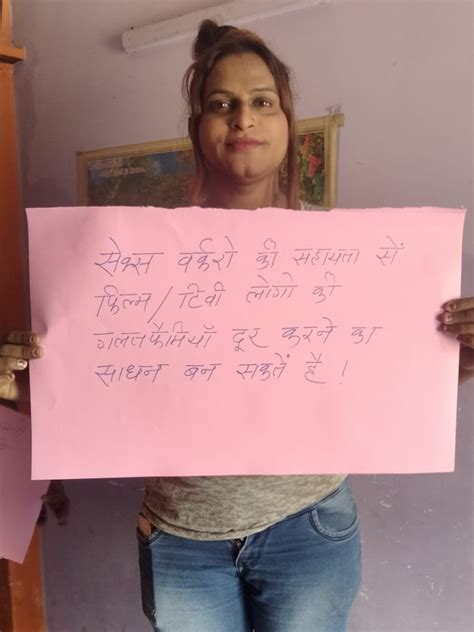 सेक्स वर्करो की सहायता सें
फिल्म / टिवी लोगो की
गलतफैमियाँ दूर करने का
साधन बन सकतें है !